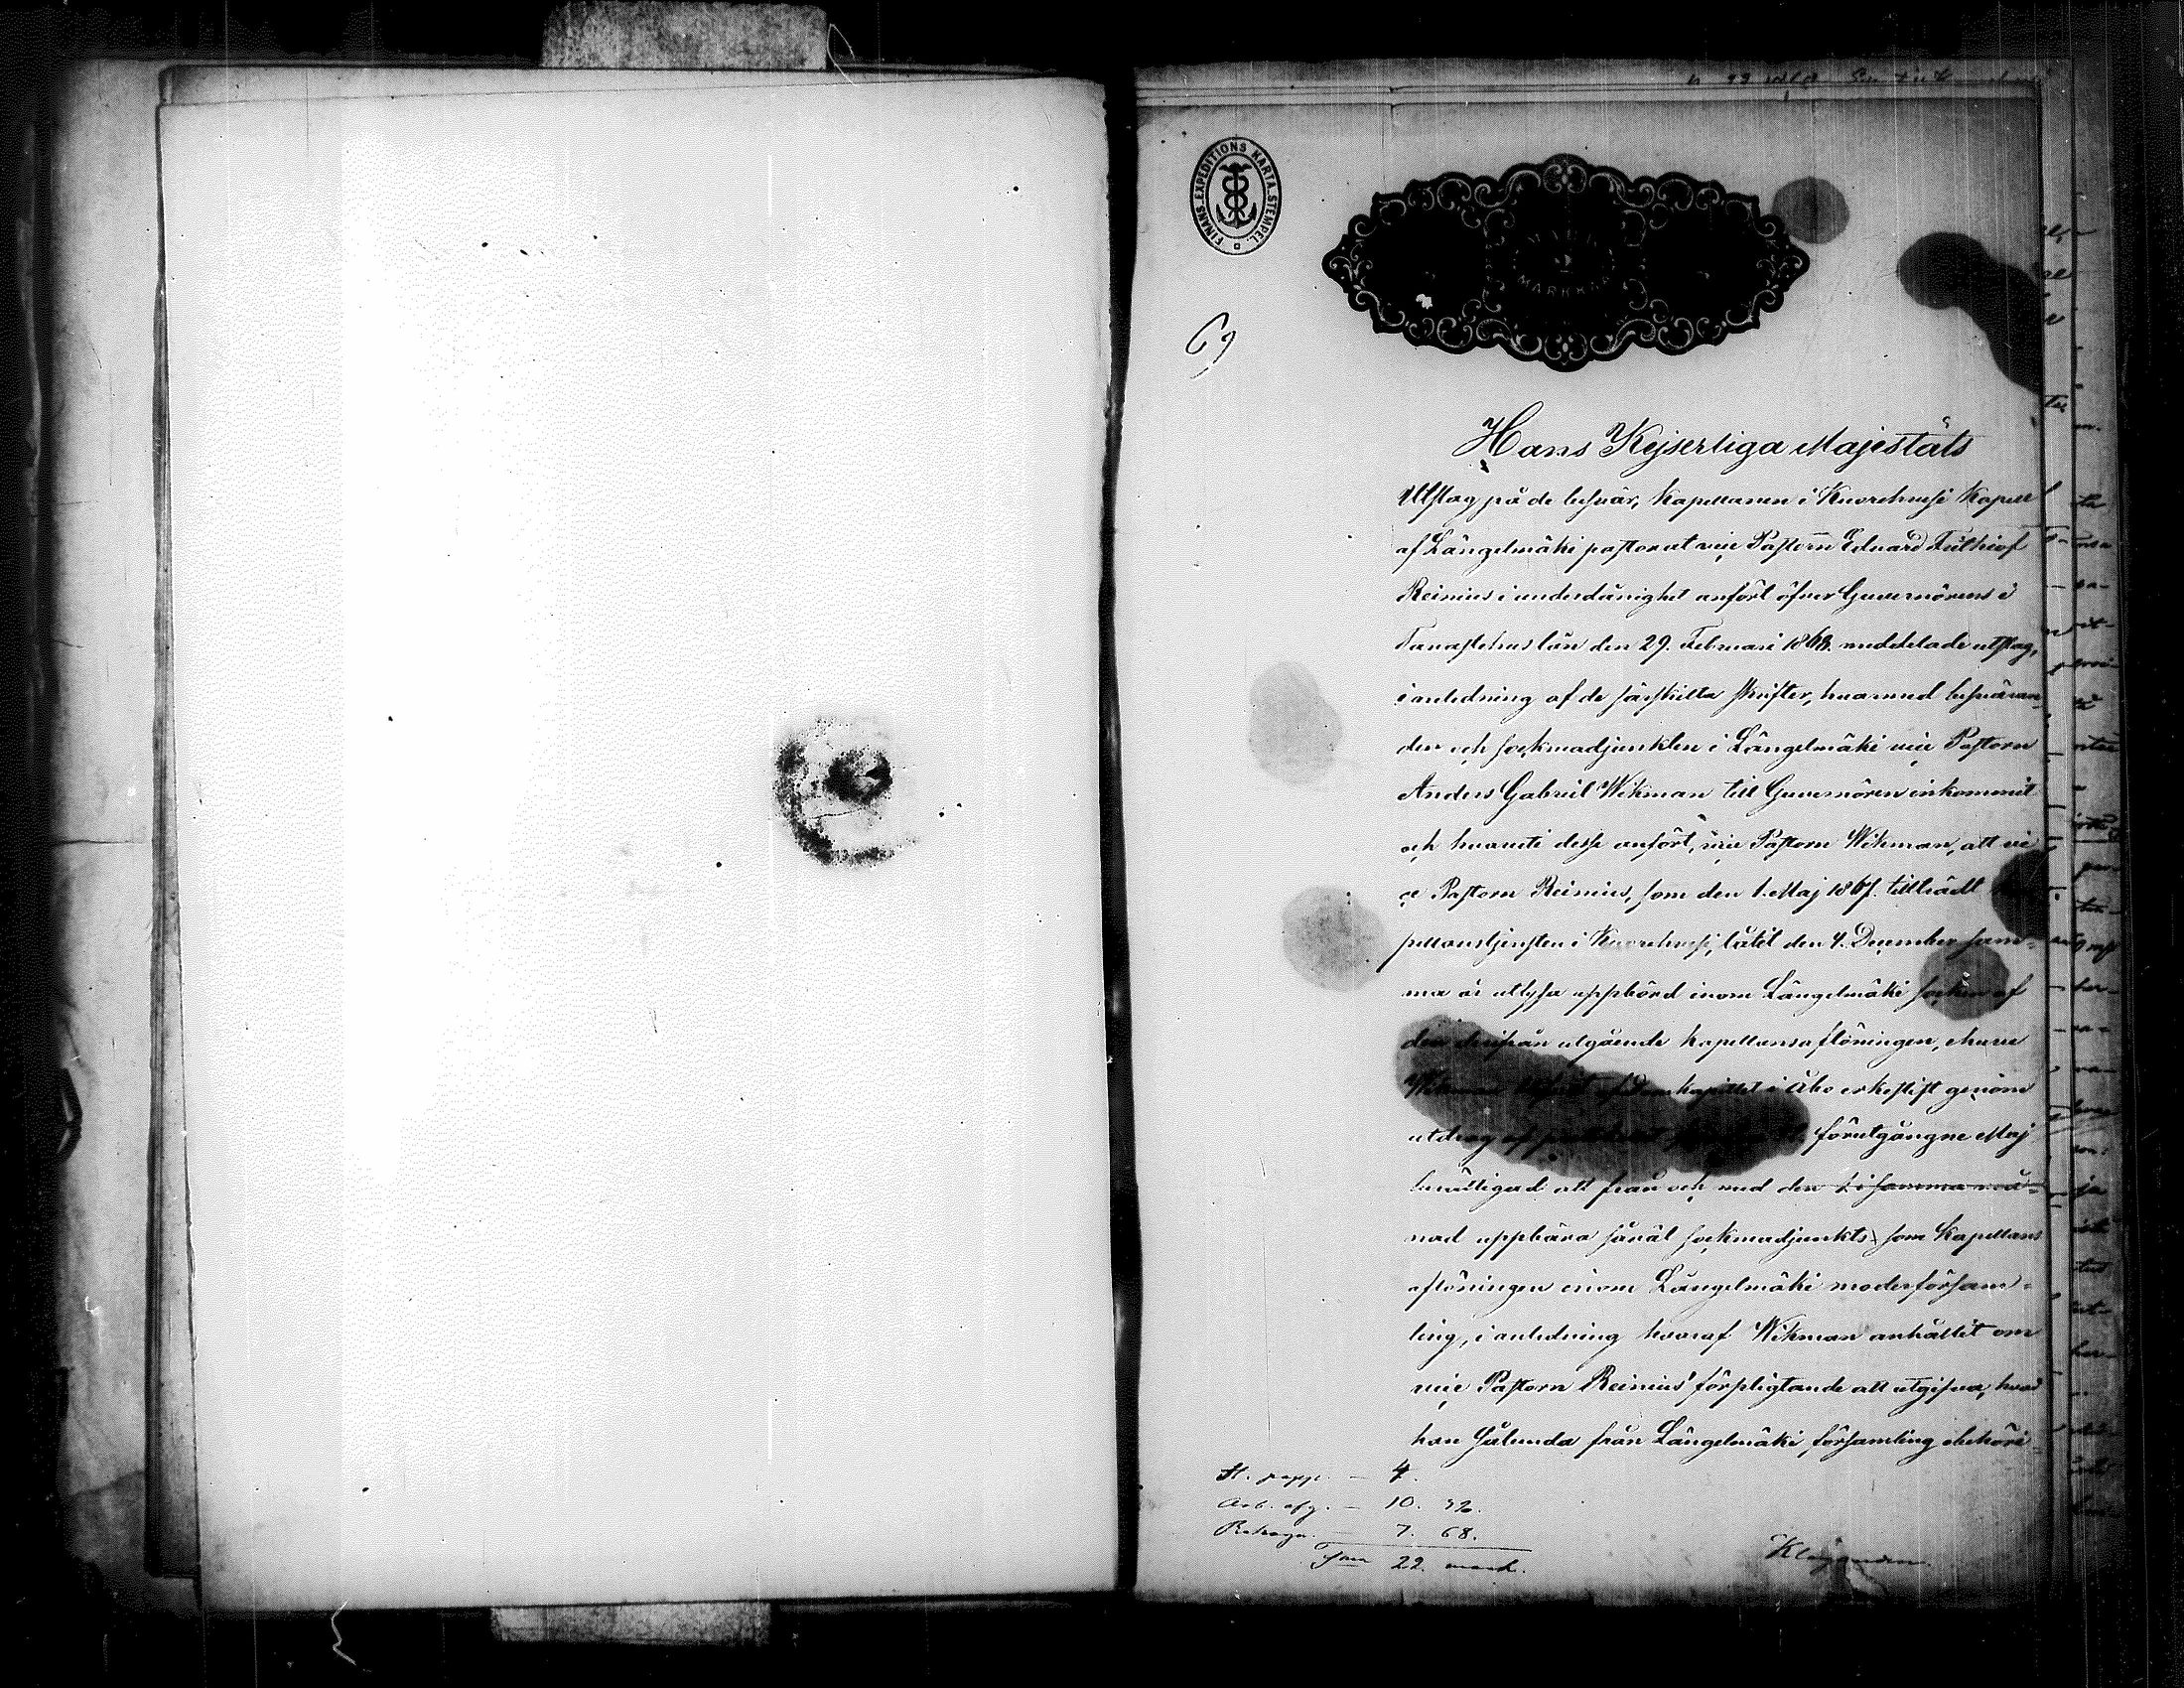 FINANS EXPEDITIONS KARTA STEMPEL.
MARK
MARKKAA
69
Hans Kejserliga Majestäts
Utslag på de besvär, Kapellanen i Kuorehvesi Kapell
af Längelmäki pastorat vice Pastorn Eduard Frithiof
Reinius i underdånighet anfört öfver Guvernörens i
Tavastehus län den 29. Februari 1868. meddelade utslag,
i anledning af de särskilta skrifter, hvarmed besväran-
den och sockneadjunkten i Längelmäki vice Pastorn
Anders Gabriel Wikman till Guvernören inkommit
och hvaruti desse anfört, vice Pastorn Wikman, att vi-
ce Pastorn Reinius, som den 1. Maj 1867. tillträdt
pellanstjensten i Kuorehvesi, låtit den 4. December sam-
ma år utlysa uppbörd inom Längelmäki socken af
den derifrån utgående kapellansaflöningen, ehuru
Wikman af Domkapitlet i Åbo erkestift genom
utdrag af förutgångne Maj
berättigad att från och med den 1 i samma må-
nad uppbära såväl sockneadjunkts som Kapellans
aflöningen inom Längelmäki moderförsam-
ling, i anledning hvaraf Wikman anhållit om
vice Pastorn Reinius' förpligtande att utgifva, hvad
han sålunda från Längelmäki församling obehöri-
St. papp. — 4.
Arb. afg. — 10. 32.
7. 68.
22. mark.
Klaganden.